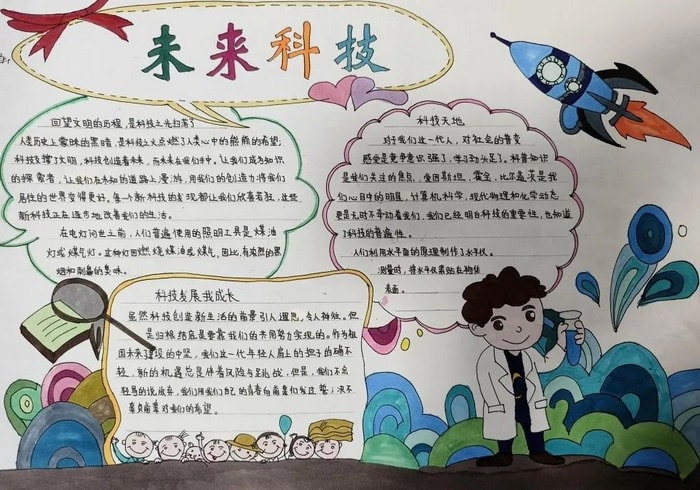 未来科技
回望文明的历程，是科技之光扫荡了
人类历史上蒙昧的黑暗，是科技之火点燃了人类心中的熊熊的希望；
科技支撑了文明，科技创造着未来，而未来在我们手中。让我们成为知识
的探索者，让我们在未知的道路上漫游，用我们的创造力将我们
居住的世界变得更好。每一个新科技的发现都让我们欣喜若狂，这些
新科技正在造力地改善我们的生活。
在电灯问世之前，人们普遍使用的照明工具是煤油
灯或煤气灯。这种灯因燃烧煤油或煤气，因此，有浓烈的黑
烟和刺鼻的臭味。
科技天地
对于我们这一代人，对社会的普变
感受是竞争意识强了，学习劲头足了，科普知识
是我们关注的焦点，爱因斯坦，霍金，比尔盖茨是我
们心目中的明星，计算机科学，现代物理和化学动态
更是无时不牵动着我们，我们已经明白科技的重要性，也知道
了科技的普遍性。
人们利用水平面的原理制作了水平仪。
测量时，将水平仪紧贴在物体
表面。
科技发展我成长
虽然科技创造新生活的前景引人遐思，令人神往。但
是归根结底是要靠我们的共同努力实现的。作为祖
国未来建设的中坚，我们这一代年轻人肩上的担子的确不
轻，新的机遇总是伴着风险与挑战，但是，我们不会
轻易的说放弃，我们用我们自己的青春向前辈们发过誓；决不
辜负前辈对我们的希望。